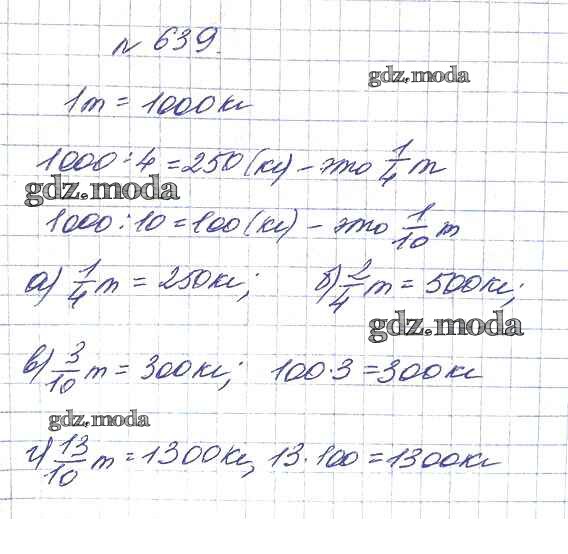 № 639.
gdz.moda
1т = 1000кг
1000 : 4 = 250 (кг) – это 1/4 т
gdz.moda
1000 : 10 = 100 (кг) – это 1/10 т
а) 1/4 т = 250кг; б) 2/4 т = 500кг;
gdz.moda
в) 3/10 т = 300кг; 100·3 = 300кг
gdz.moda
г) 13/10 т = 1300кг, 13·100 = 1300кг